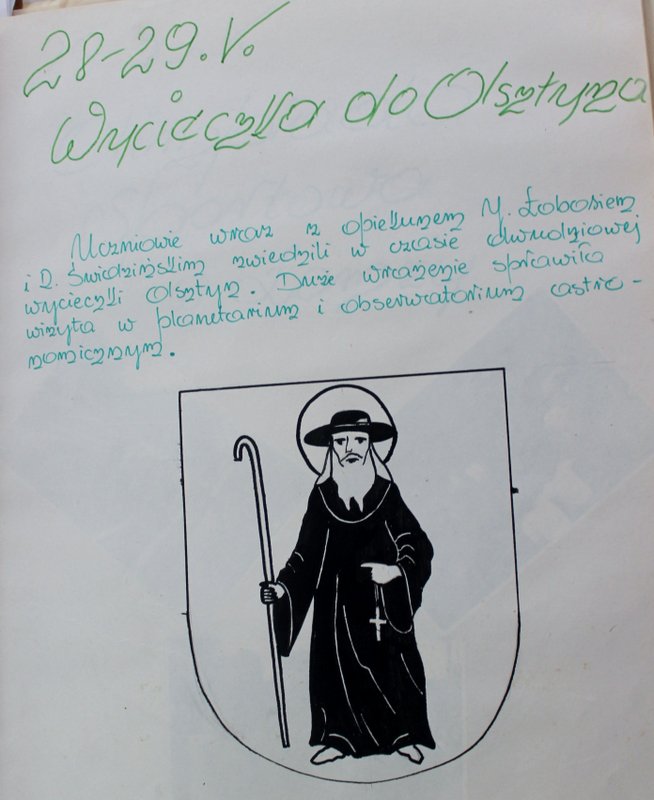 28-29.V.
Wycieczka do Olsztyna
Uczniowie wraz z opiekunem M. Łobosiem
i D. Świdzińskim zwiedzili w czasie dwudniowej
wycieczki Olsztyn. Duże wrażenie sprawiła
wizyta w planetarium i obserwatorium astro-
nomicznym.